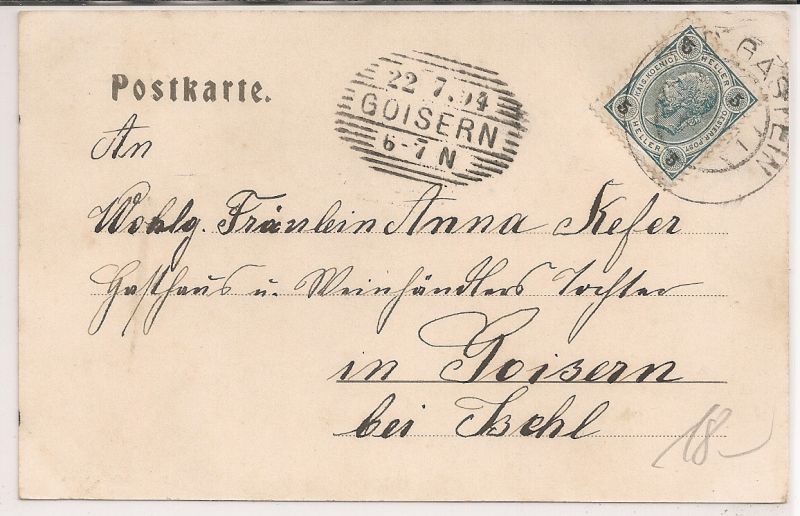 Postkarte.
22 7.04
GOISERN
6-7 N
GASTEIN
5 5 5 5
KAIS. KOENIGL. OESTERR. POST
HELLER HELLER
An
Wohlg. Fräulein Anna Kefer
Gasthaus u. Weinhändlers Tochter
in Goisern
bei Ischl
18-